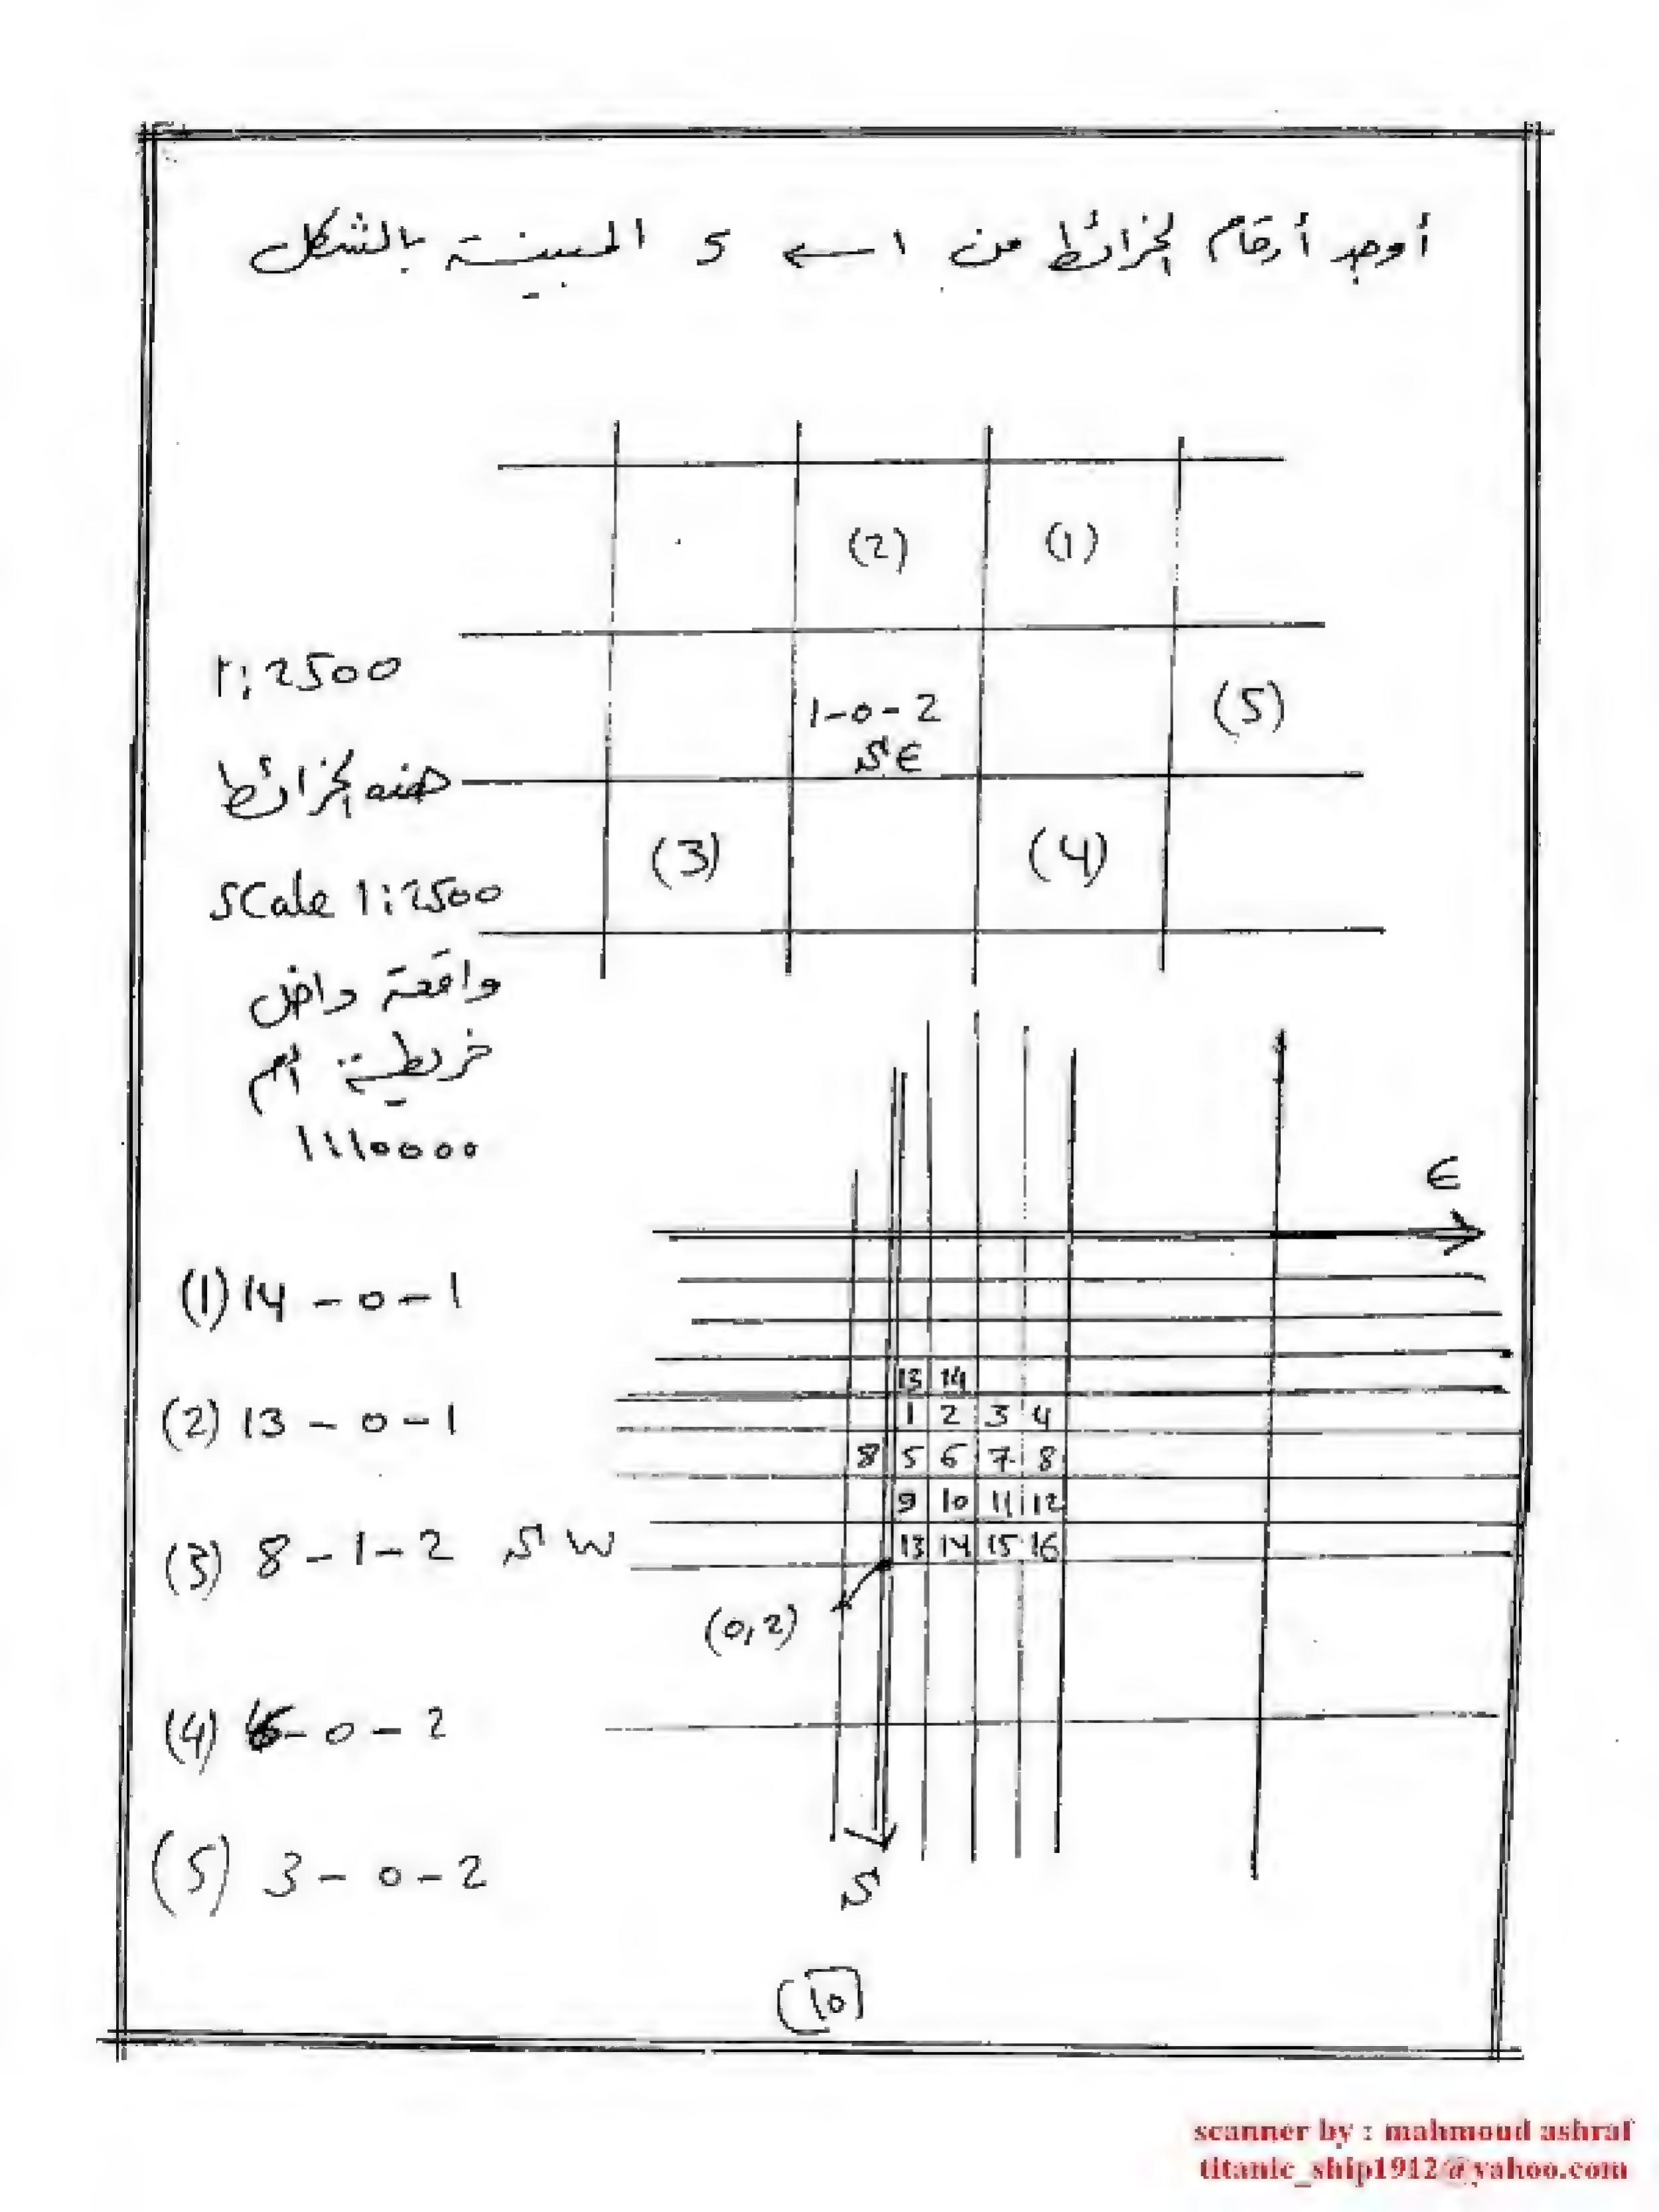 أوجد أرقام الخرائط من 1 ← 5 المبينة بالشكل
(2) (1)
1:2500
1-0-2 (5)
SE
هذه الخرائط
(3) (4)
Scale 1:2500
واقعة داخل
خريطة أم
1/10000
E
(1) 14 - 0 - 1
13 14
(2) 13 - 0 - 1
1 2 3 4
8 5 6 7 8
9 10 11 12
(3) 8 - 1 - 2 SW
13 14 15 16
(0,2)
(4) 6 - 0 - 2
(5) 3 - 0 - 2
S
10
scanner by : mahmoud ashraf
titanic_ship1912@yahoo.com